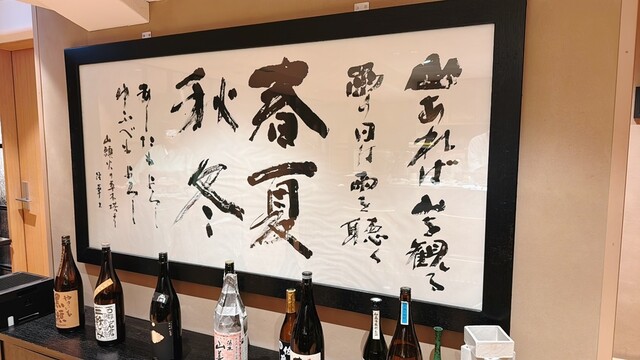 山あれば山を観る
雨の日は雨を聴く
春夏
秋冬
あしたもよろし
ゆふべもよろし
山頭火の草木塔より